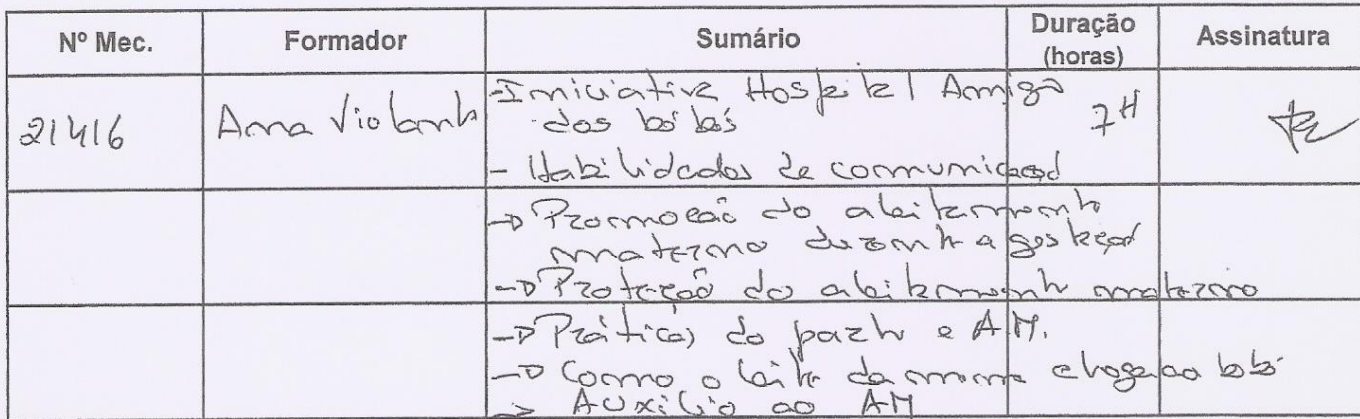 Nº Mec. Formador Sumário Duração (horas) Assinatura
21416 Anna Violante - Iniciativa Hospital Amigo 7H
dos bébés
- Habilidades de comunicação
-> Promoção do aleitamento
materno durante a gestação
-> Proteção do aleitamento materno
-> Práticas do parto e AM.
-> Como o leite da mama chega ao bébé
-> Auxílio ao AM